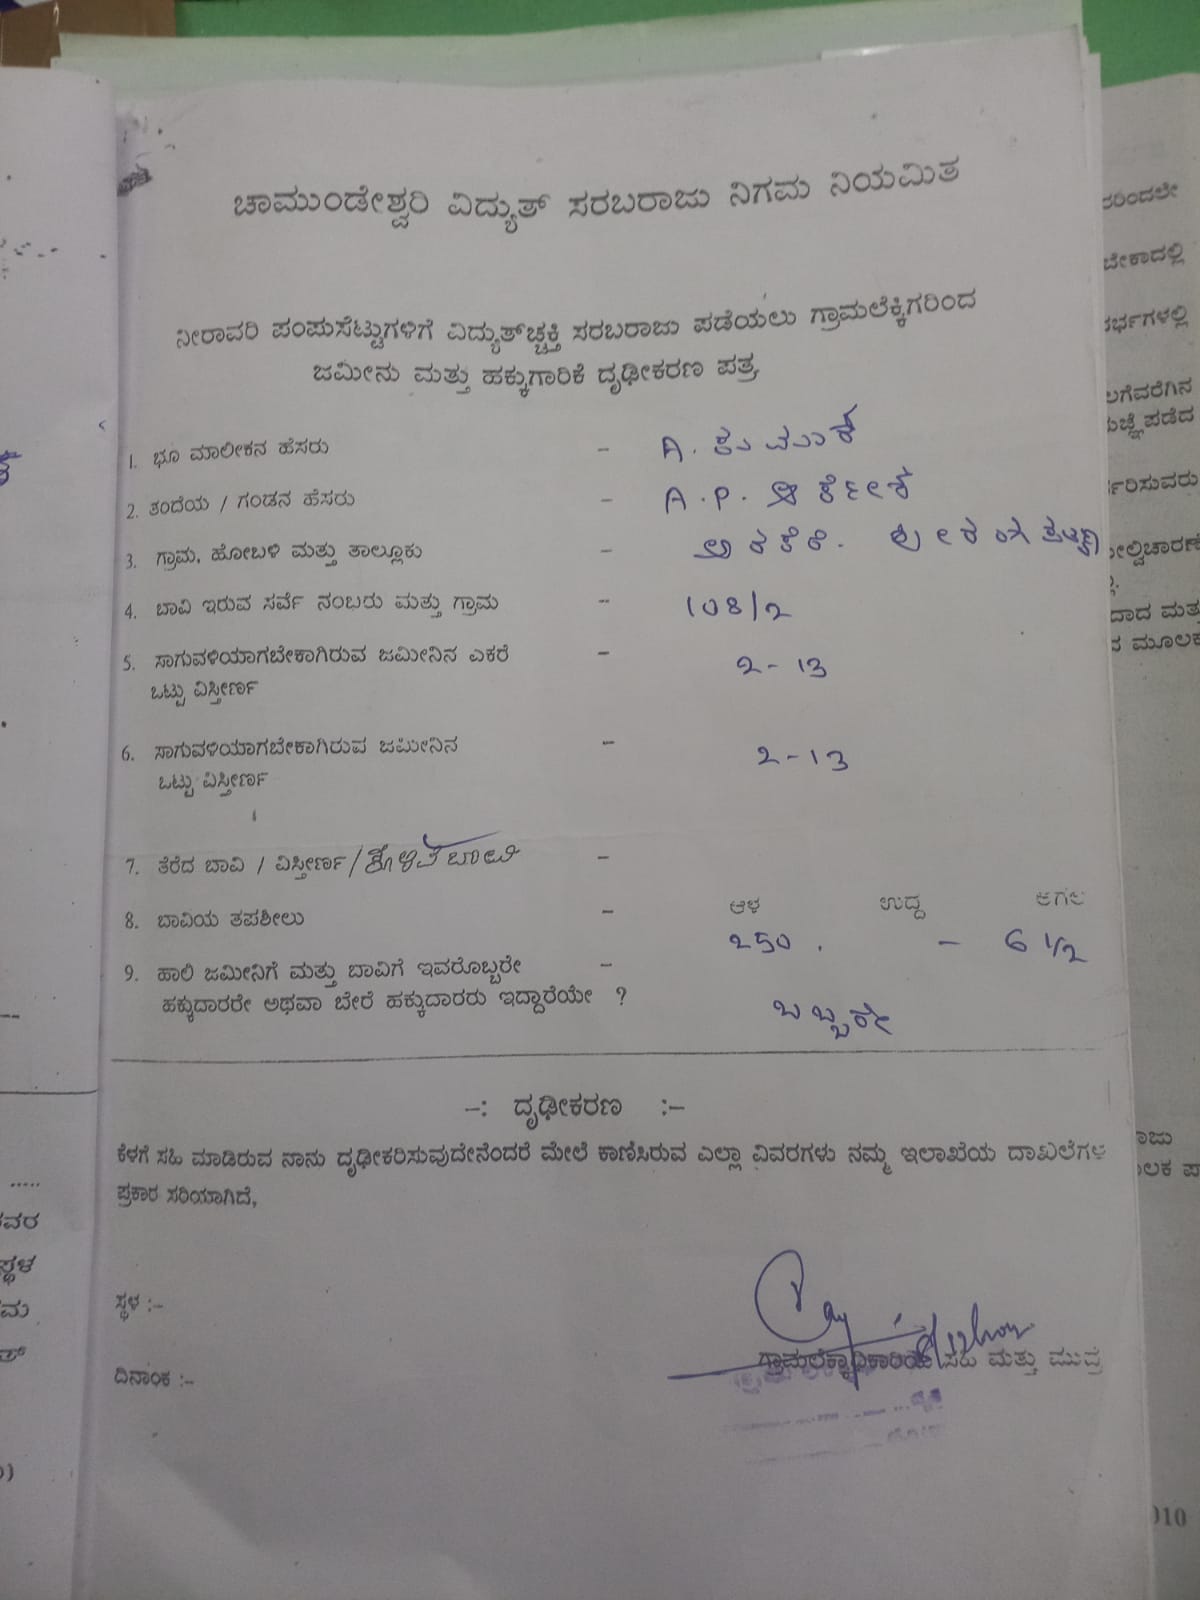 ಚಾಮುಂಡೇಶ್ವರಿ ವಿದ್ಯುತ್ ಸರಬರಾಜು ನಿಗಮ ನಿಯಮಿತ
ನೀರಾವರಿ ಪಂಪುಸೆಟ್ಟುಗಳಿಗೆ ವಿದ್ಯುತ್‌ಚ್ಛಕ್ತಿ ಸರಬರಾಜು ಪಡೆಯಲು ಗ್ರಾಮಲೆಕ್ಕಿಗರಿಂದ
ಜಮೀನು ಮತ್ತು ಹಕ್ಕುಗಾರಿಕೆ ದೃಢೀಕರಣ ಪತ್ರ
1. ಭೂ ಮಾಲೀಕನ ಹೆಸರು – A. ಕುಮಾರ್
2. ತಂದೆಯ / ಗಂಡನ ಹೆಸರು – A.P.
3. ಗ್ರಾಮ, ಹೋಬಳಿ ಮತ್ತು ತಾಲ್ಲೂಕು – ಅರಕೆರೆ. ಶ್ರೀರಂಗಪಟ್ಟಣ
4. ಬಾವಿ ಇರುವ ಸರ್ವೆ ನಂಬರು ಮತ್ತು ಗ್ರಾಮ – 108/2
5. ಸಾಗುವಳಿಯಾಗಬೇಕಾಗಿರುವ ಜಮೀನಿನ ಎಕರೆ – 2-13
ಒಟ್ಟು ವಿಸ್ತೀರ್ಣ
6. ಸಾಗುವಳಿಯಾಗಬೇಕಾಗಿರುವ ಜಮೀನಿನ – 2-13
ಒಟ್ಟು ವಿಸ್ತೀರ್ಣ
7. ತೆರೆದ ಬಾವಿ / ವಿಸ್ತೀರ್ಣ/ಕೊಳವೆ ಬಾವಿ –
8. ಬಾವಿಯ ತಪಶೀಲು – ಆಳ ಉದ್ದ ಅಗಲ
250. – 6 1/2
9. ಹಾಲಿ ಜಮೀನಿಗೆ ಮತ್ತು ಬಾವಿಗೆ ಇವರೊಬ್ಬರೇ –
ಹಕ್ಕುದಾರರೇ ಅಥವಾ ಬೇರೆ ಹಕ್ಕುದಾರರು ಇದ್ದಾರೆಯೇ ? ಒಬ್ಬರೇ
–: ದೃಢೀಕರಣ :–
ಕೆಳಗೆ ಸಹಿ ಮಾಡಿರುವ ನಾನು ದೃಢೀಕರಿಸುವುದೇನೆಂದರೆ ಮೇಲೆ ಕಾಣಿಸಿರುವ ಎಲ್ಲಾ ವಿವರಗಳು ನಮ್ಮ ಇಲಾಖೆಯ ದಾಖಲೆಗಳ
ಪ್ರಕಾರ ಸರಿಯಾಗಿದೆ,
ಸ್ಥಳ :–
ಗ್ರಾಮಲೆಕ್ಕಾಧಿಕಾರಿಯ ಸಹಿ ಮತ್ತು ಮುದ್ರೆ
ದಿನಾಂಕ :–